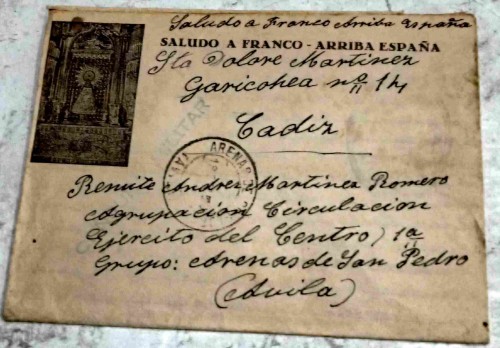 Saludo a Franco Arriba España
SALUDO A FRANCO - ARRIBA ESPAÑA
Sta Dolore Martinez
Garicohea nº 14
Cadiz
MILITAR
ARENAS
Remite Andres Martinez Romero
Agrupacion Circulacion
Ejercito del Centro) 1ª
Grupo: Arenas de San Pedro
(Avila)